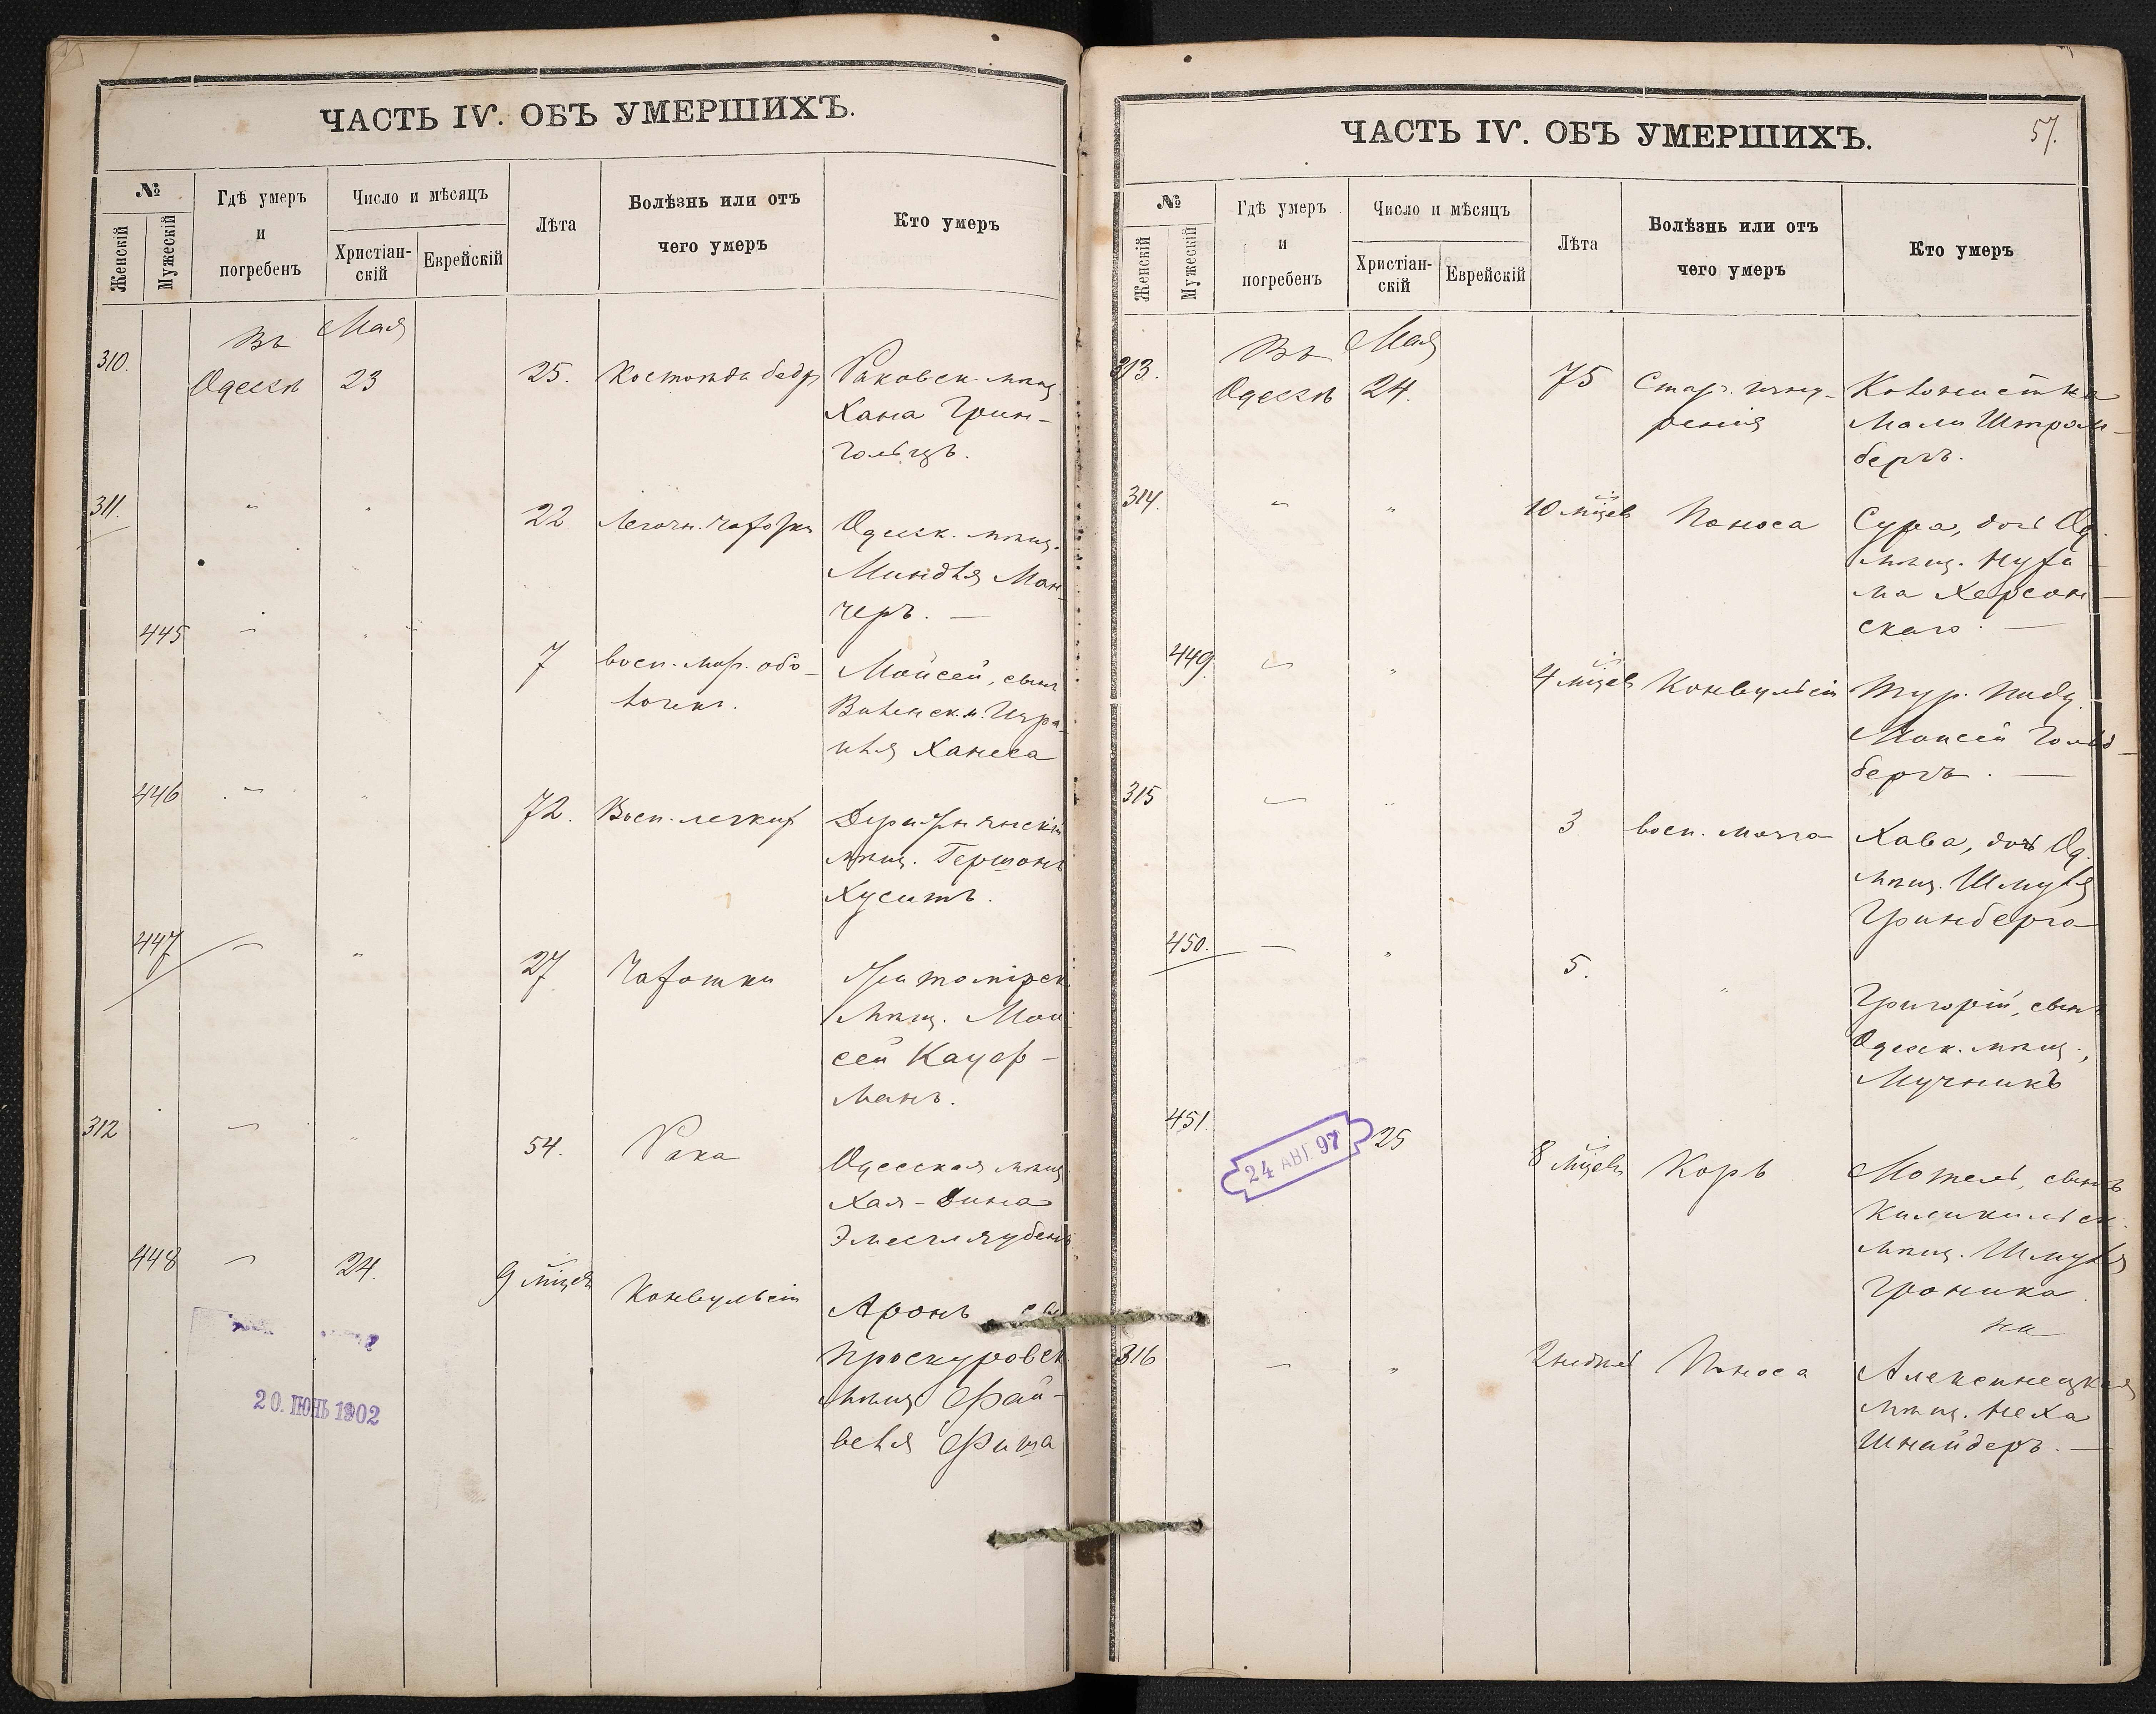 ЧАСТЬ IV. ОБЪ УМЕРШИХЪ.
№
Женскій
Мужескій
Гдѣ умеръ
и
погребенъ
Число и мѣсяцъ
Христіан-
скій
Еврейскій
Лѣта
Болѣзнь или отъ
чего умеръ
Кто умеръ
Въ Мая
310. Одессѣ 23 25. Костоѣда бедр Раковск. мѣщ
Хана Грин-
гольцъ.
311. " " 22 Легочн. чахотки Одесск. мѣщ.
Миндля Ман-
черъ. —
445 " " 7 восп. мозг. обо-
лочекъ. Мойсей, сынъ
Виленск. м. Изра-
иля Ханеса
446 " " 72. Восп. легкихъ Деражнянскій
мѣщ. Гершонъ
Хуситъ.
447 " " 27 Чахотки Житомірск.
мѣщ. Мои-
сей Кацеф-
манъ.
312 " " 54. Рака Одесская мѣщ
Хая-Дина
448 " 24. 9 мѣсцевъ Конвульсіи Аронъ
Проскуровск.
мѣщ Фай-
веля Фиша
20. ІЮНЬ 1902
ЧАСТЬ IV. ОБЪ УМЕРШИХЪ.
57.
№
Женскій
Мужескій
Гдѣ умеръ
и
погребенъ
Число и мѣсяцъ
Христіан-
скій
Еврейскій
Лѣта
Болѣзнь или отъ
чего умеръ
Кто умеръ
Въ Мая
313. Одессѣ 24. 75 Стар. изну-
ренія Колонистка
Мали Штром-
бергъ.
314. " " 10 мѣсцевъ Поноса Сура, дочь Од.
мѣщ. Нуха-
ма Херсон-
скаго. —
449. " " 4 мѣсцевъ Конвульсіи Тур. подд.
Моисей Гольд-
бергъ. —
315 " " 3. восп. мозга Хава, дочь Од.
мѣщ. Шмуля
Гринберга
450. — " 5. " Григорій, сынъ
Одесск. мѣщ.,
Мучникъ
451. 25 8 мѣсцевъ Корь Мотель, сынъ
мѣщ. Шмуля
24 АВГ. 97
316 — " 2 недѣль Поноса Алексинецкая
мѣщ. Неха
Шнайдеръ. —